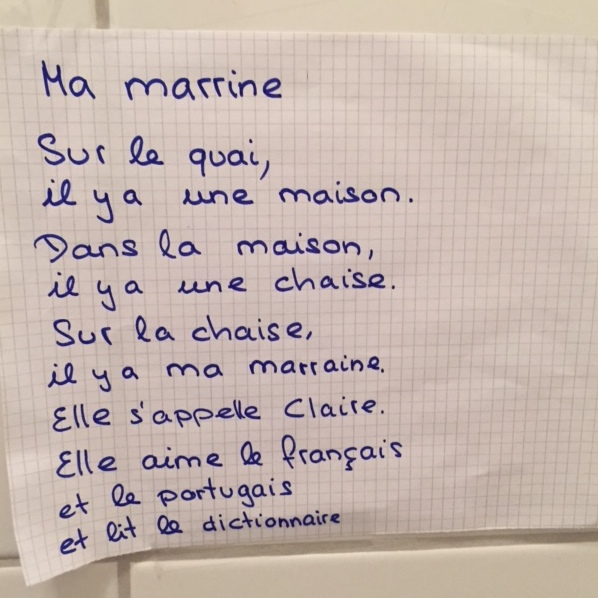 Ma marrine
Sur le quai,
il y a une maison.
Dans la maison,
il y a une chaise.
Sur la chaise,
il y a ma marraine.
Elle s'appelle Claire.
Elle aime le français
et le portugais
et lit le dictionnaire